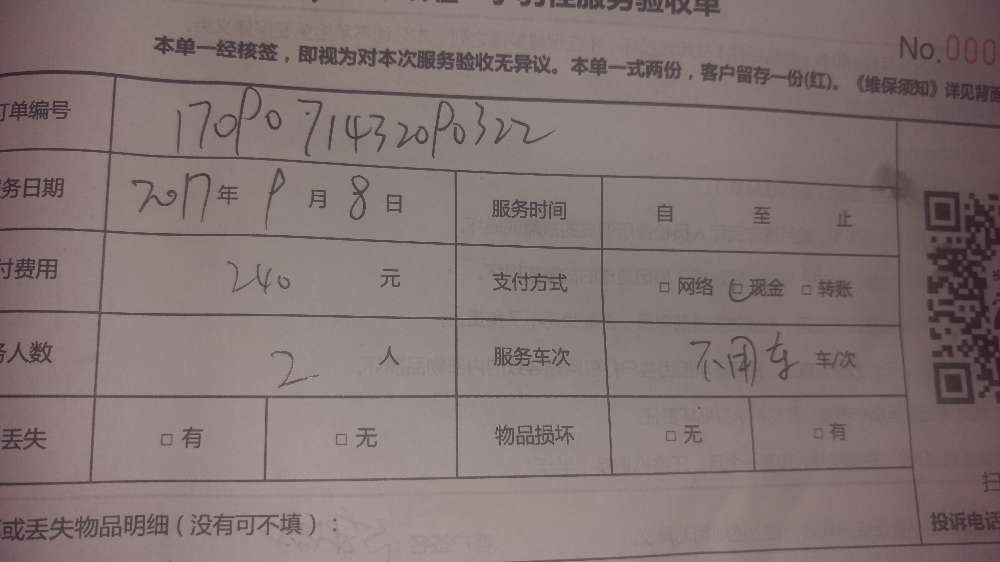 服务验收单
No.000
本单一经核签，即视为对本次服务验收无异议。本单一式两份，客户留存一份(红)。《维保须知》详见背面
订单编号 170P0714320P0322
务日期 2017年 9月 8日 服务时间 自 至 止
付费用 240 元 支付方式 □ 网络 □ 现金 □ 转账
务人数 2 人 服务车次 不用车 车/次
丢失 □ 有 □ 无 物品损坏 □ 无 □ 有
或丢失物品明细（没有可不填）：
扫
投诉电话